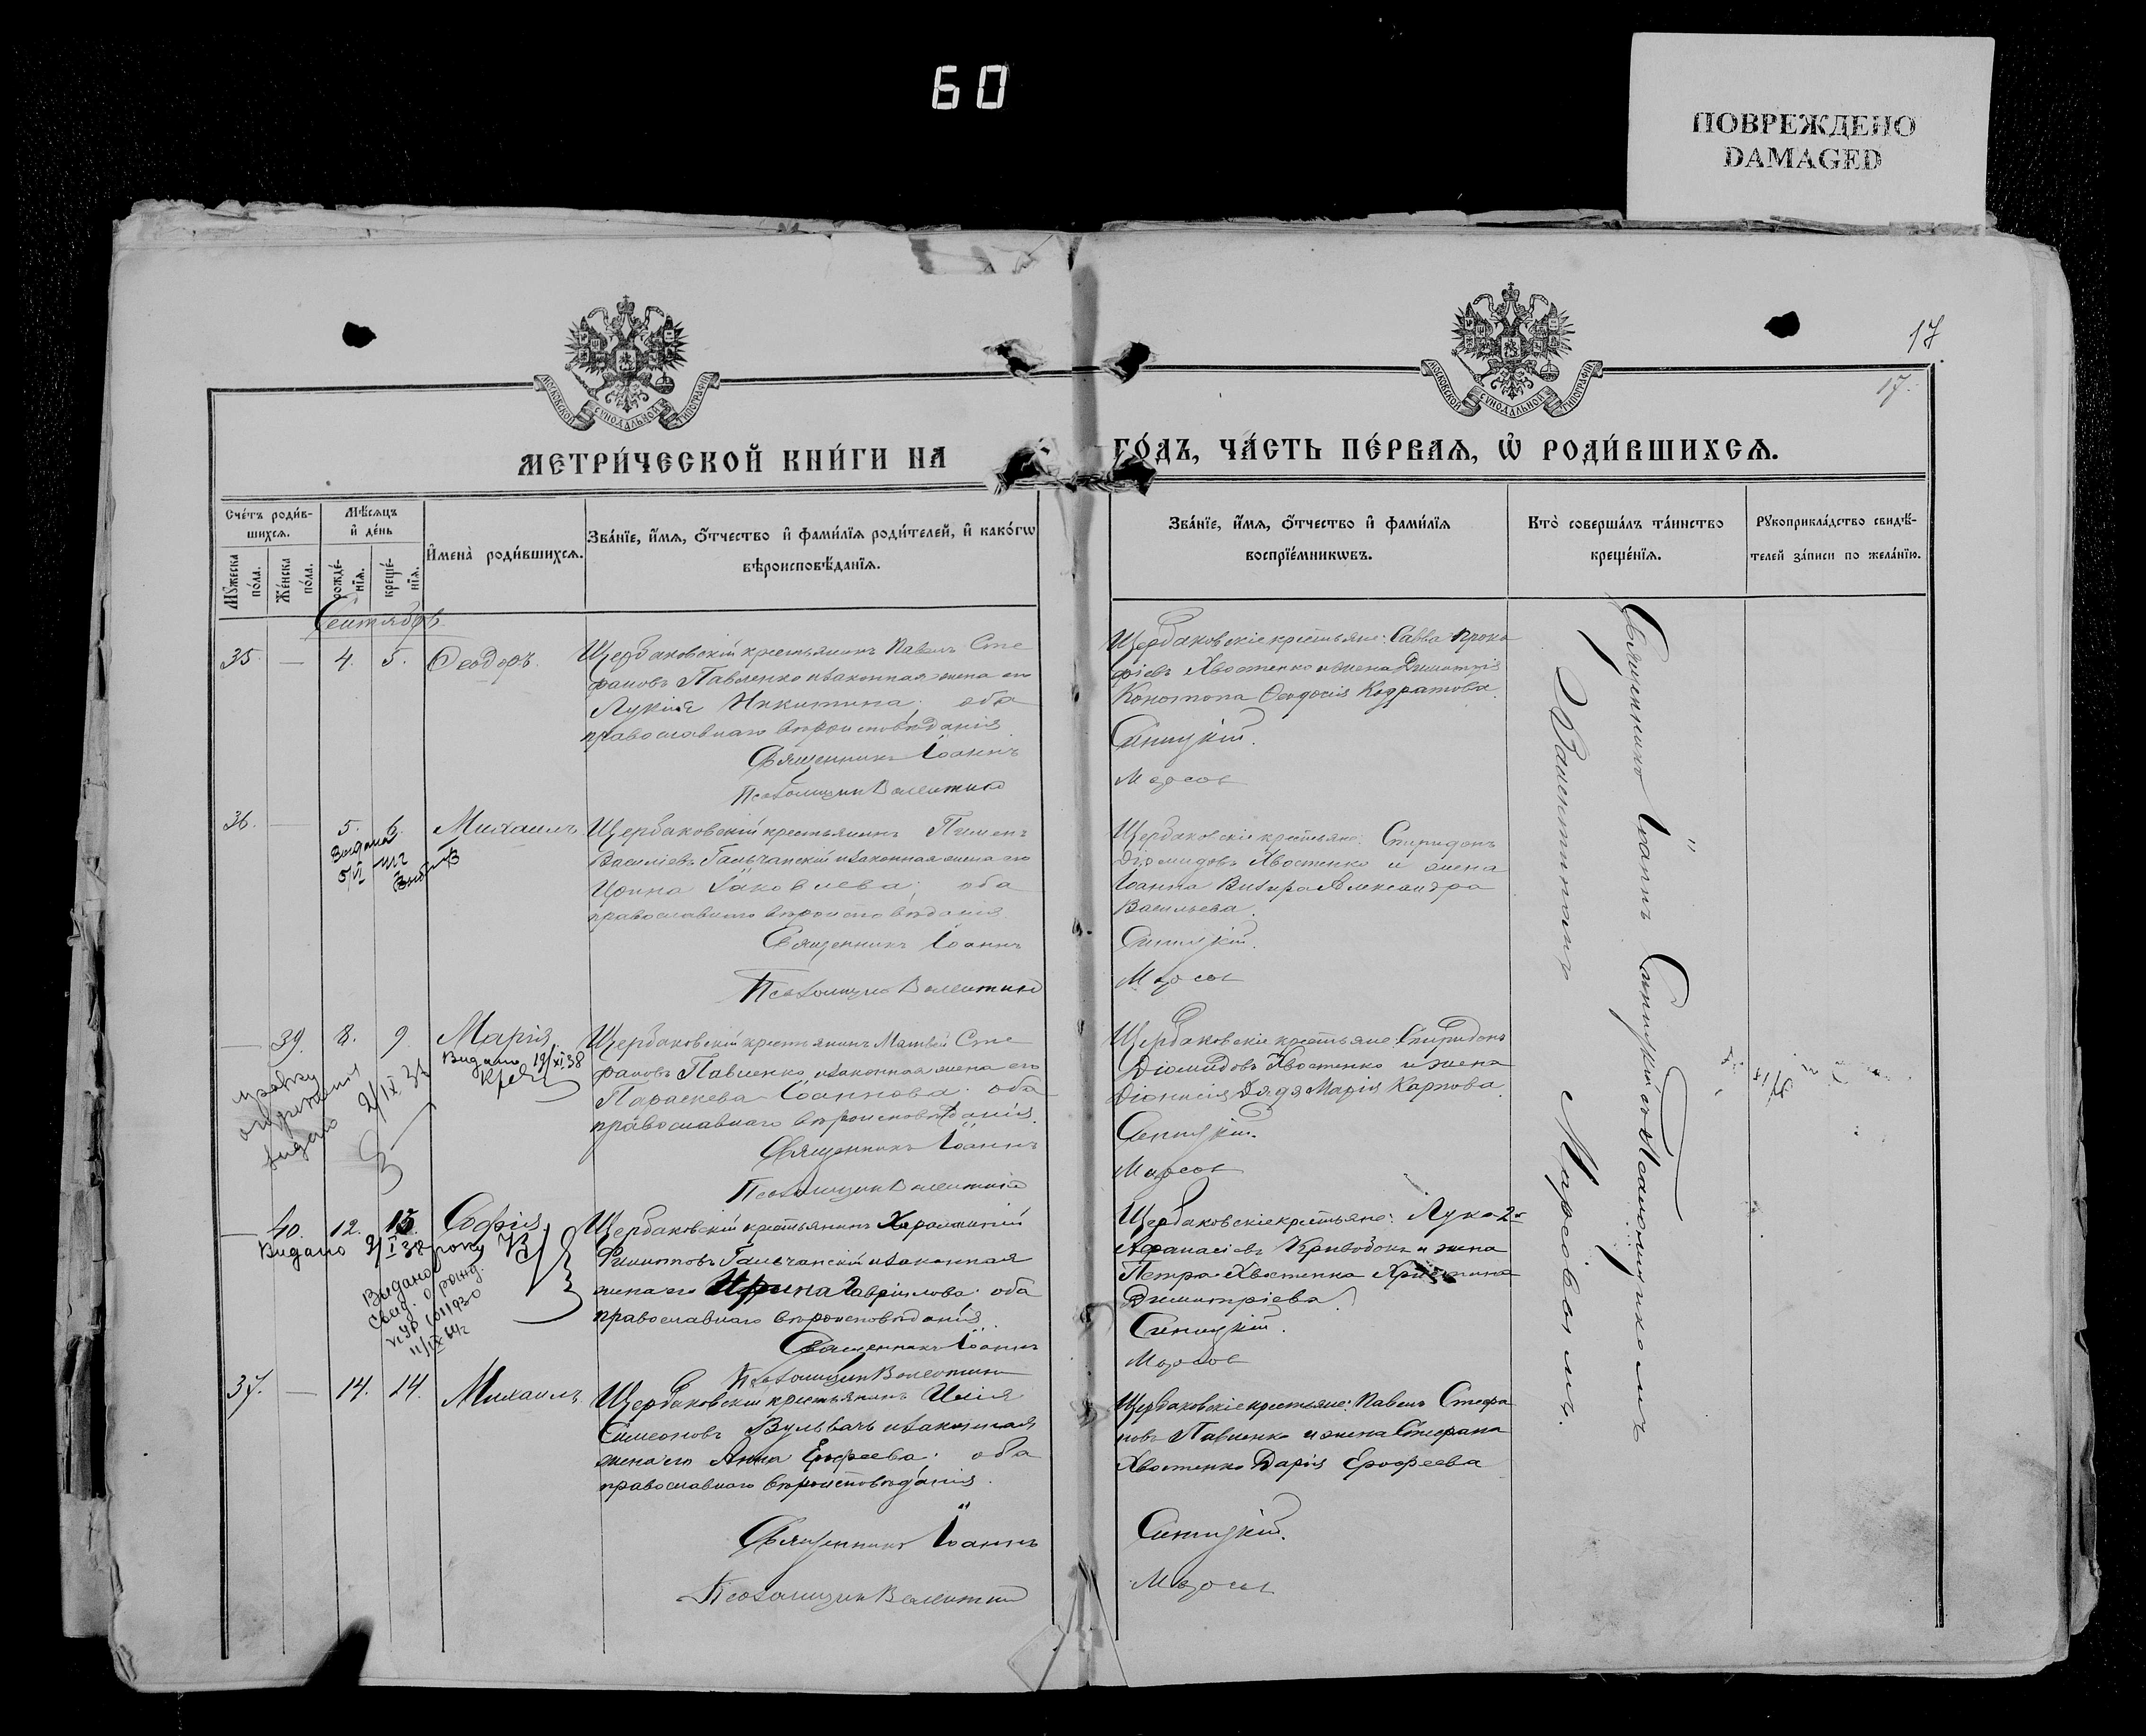 60
ПОВРЕЖДЕНО
DAMAGED
17
17.
МОСКОВСКОЙ СѴНОДАЛЬНОЙ ТИПОГРАФІИ
МОСКОВСКОЙ СѴНОДАЛЬНОЙ ТИПОГРАФІИ
МЕТРИ́ЧЕСКОЙ КНИ́ГИ НА ГО́ДЪ, ЧА́СТЬ ПЕ́РВАѦ, Ѡ҆ РОДИ́ВШИХСѦ.
Сче́тъ роди́в-
шихсѧ.
Мꙋ́жеска по́ла.
Же́нска по́ла.
Мѣ́сѧцъ
и҆ де́нь
рожде́-нїѧ.
креще́-нїѧ.
И҆мена̀ роди́вшихсѧ.
Зва́нїе, и҆́мѧ, ѻ҆́тчество и҆ фами́лїѧ роди́телей, и҆ како́гѡ
вѣроисповѣ́данїѧ.
Зва́нїе, и҆́мѧ, ѻ҆́тчество и҆ фами́лїѧ
воспрїе́мникѡвъ.
Кто̀ соверша́лъ та́инство
креще́нїѧ.
Рꙋкоприкла́дство свидѣ́-
телей за́писи по жела́нїю.
Сентябрь
35. — 4. 5. Ѳеодоръ.
Щербаковскій крестьянинъ Павелъ Сте
фановъ Павленко и законная жена его
Лукія Никитина; оба
православнаго вѣроисповѣданія.
Священникъ Іоаннъ
Псаломщикъ Валентинъ
Щербаковскіе крестьяне: Савва Проко
фіевъ Хвостенко и жена Димитрія
Конотопа Ѳеодосія Кодратова.
Синицкій.
Маросов
36. — 5. 6. Михаилъ
Видано
5/VI
Щербаковскій крестьянинъ Пименъ
Василіевъ Гальчанскій и законная жена его
Ирина Іаковлева; оба
православнаго вѣроисповѣданія.
Священникъ Іоаннъ
Псаломщикъ Валентинъ
Щербаковскіе крестьяне: Спиридонъ
Діомидовъ Хвостенко и жена
Іоанна Александра
Васильева.
Синицкій.
Маросов
— 39. 8. 9. Марія
Видано 19/XI 38
видано 2/IX 37
Щербаковскій крестьянинъ Матвѣй Сте
фановъ Павленко и законная жена его
Параскева Іоаннова; оба
православнаго вѣроисповѣданія.
Священникъ Іоаннъ
Псаломщикъ Валентинъ
Щербаковскіе крестьяне: Спиридонъ
Діомидовъ Хвостенко и жена
Діонисія Дядя Марія Карпова.
Синицкій.
Маросов
— 40. 12. 13. Софія
Видано 2/I 38 року
Видано
свид. о рожд.
11/IX
Щербаковскій крестьянинъ Харлампій
Филиповъ Гальчанскій и законная
жена его Ирина Гавріилова; оба
православнаго вѣроисповѣданія.
Священникъ Іоаннъ
Псаломщикъ Валентинъ
Щербаковскіе крестьяне: Лука 2й
Аѳанасіевъ Кривобокъ и жена
Петра Хвостенка Христина
Димитріева.
Синицкій.
Маросов
37. — 14. 14. Михаилъ
Щербаковскій крестьянинъ Илія
Симеоновъ Вульвачъ и законная
жена его Анна Ерофеева; оба
православнаго вѣроисповѣданія.
Священникъ Іоаннъ
Псаломщикъ Валентинъ
Щербаковскіе крестьяне: Павелъ Стефа
новъ Павленко и жена Стефана
Хвостенко Дарія Ерофеева
Синицкій.
Маросов
Священникъ Іоаннъ Синицкій съ псаломщикомъ
Валентиномъ Маросовымъ.